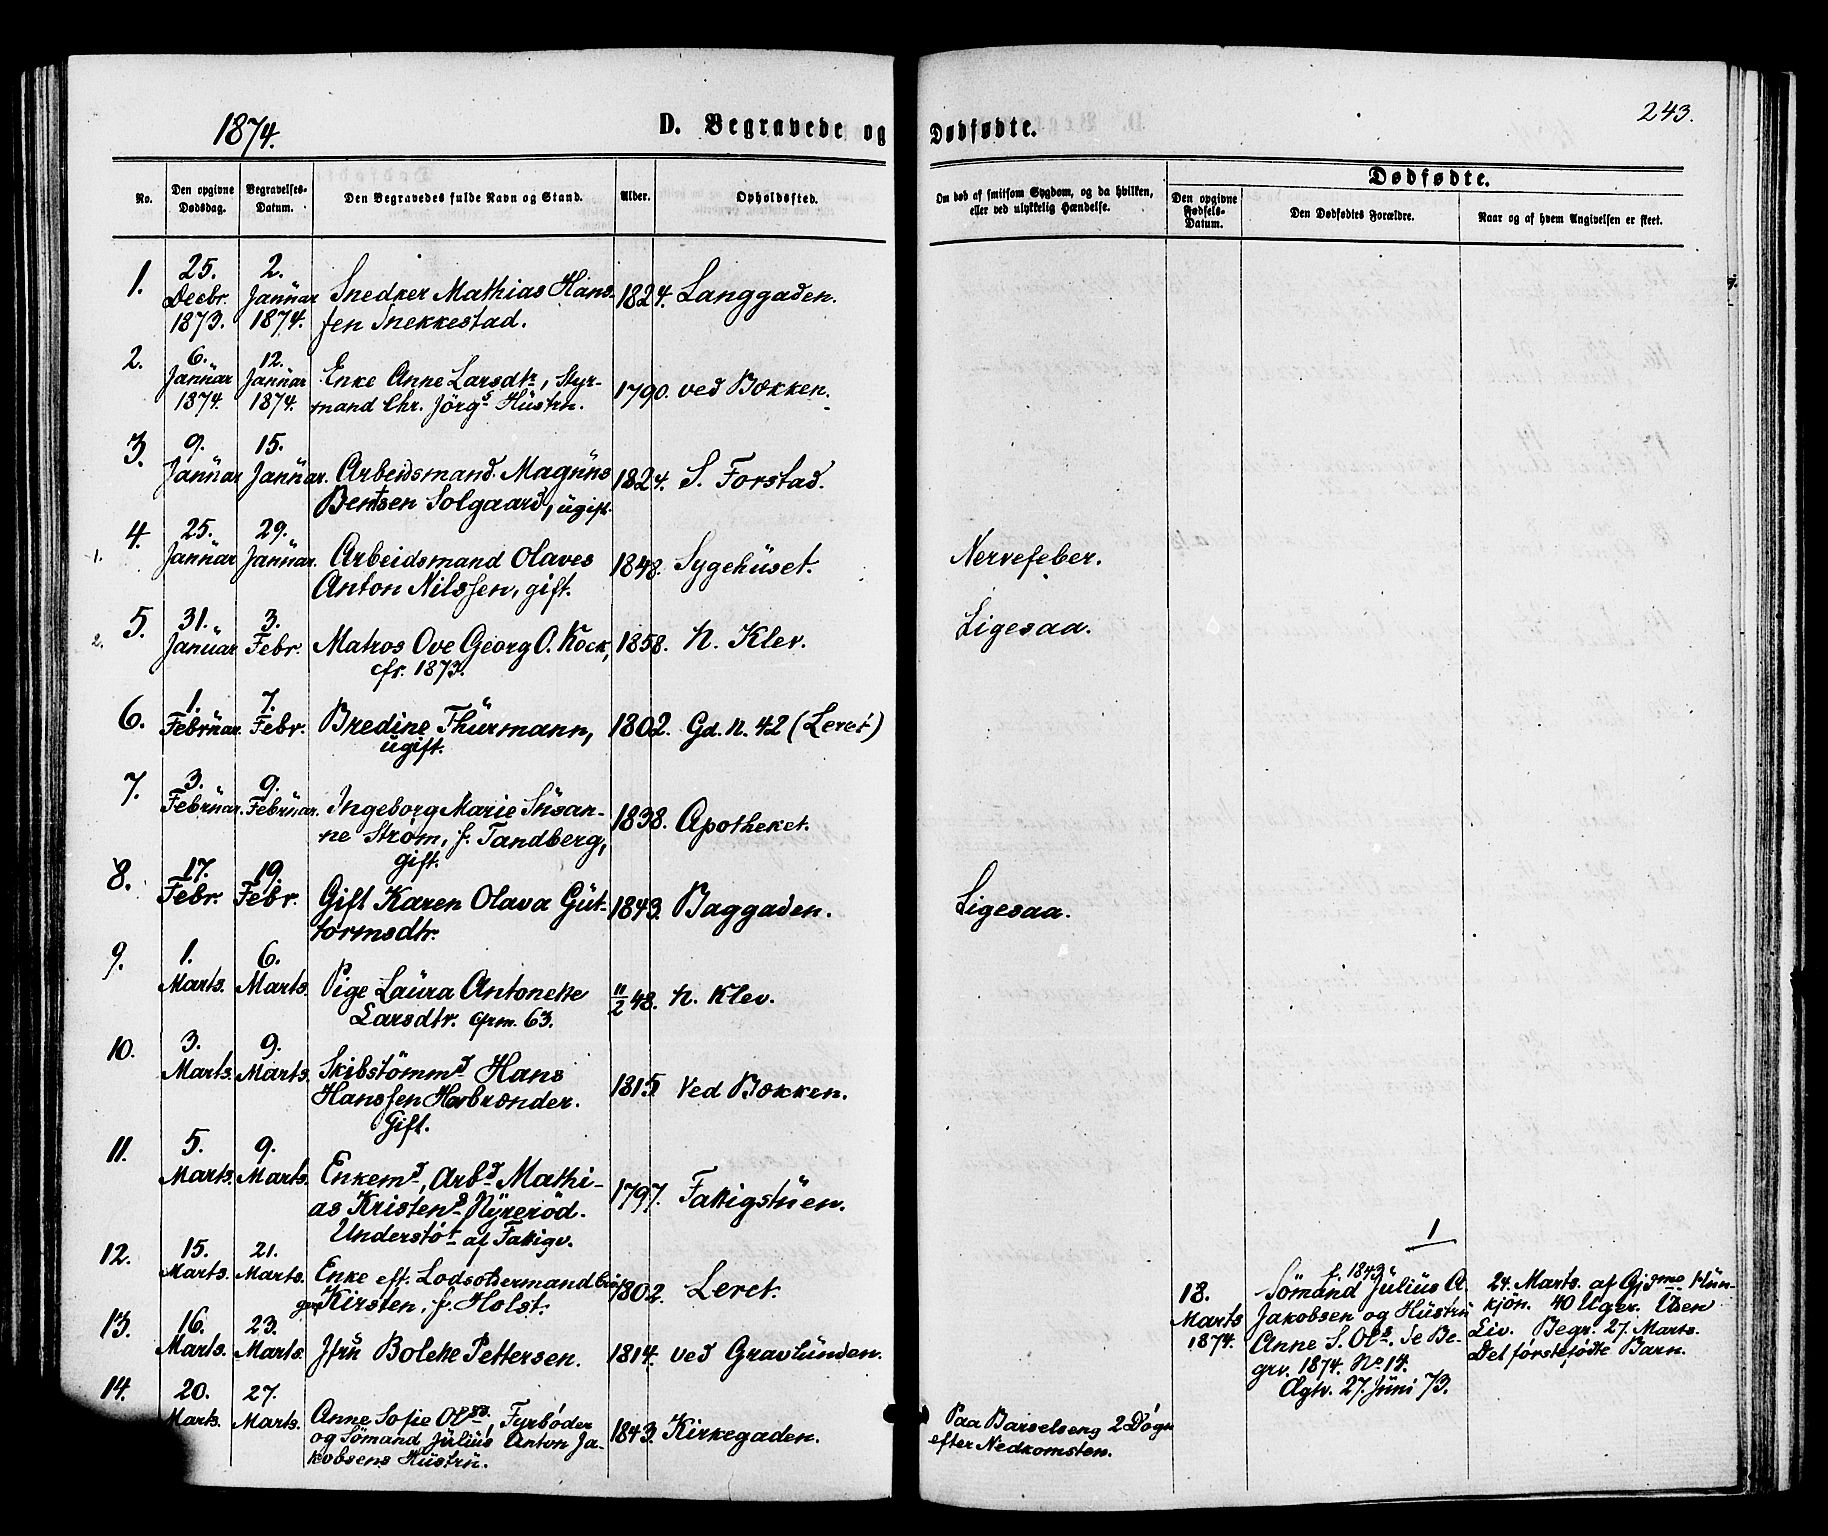 1874.
D. Begravede og Dødfødte.
243.
No.
Den opgivne Dødsdag.
Begravelses-Datum.
Den Begravedes fulde Navn og Stand.
Alder.
Opholdssted.
Om død af smitsom Sygdom, og da hvilken,
eller ved ulykkelig Hændelse.
Dødfødte.
Den opgivne Fødsels-Datum.
Den Dødfødtes Forældre.
Naar og af hvem Angivelsen er skeet.
1. 25. Decbr. 1873. 2. Januar 1874. Snedker Mathias Hans-
sen Snekkestad. 1824. Langgaden.
2. 6. Januar 1874. 12. Januar 1874. Enke Anne Larsdtr, Styr-
mand Chr. Jörgs Hustru. 1790. ved Bækken.
3. 9. Januar 15. Januar. Arbeidsmand Magnus
Bentsen Solgaard, ugift. 1824. S. Forstad.
1. 4. 25. Januar 29. Januar. Arbeidsmand Olaves
Anton Nilssen, gift. 1848. Sygehuset. Nervefeber.
2. 5. 31. Januar 3. Febr. Matros Ove Georg O. Kock,
cfr. 1873. 1858. N. Klev. Ligesaa.
6. 1. Februar. 7. Febr. Bredine Thurmann,
ugift. 1802. Gd. N. 42 (Leret)
7. 3. Februar. 9. Februar. Ingeborg Marie Susan-
ne Strøm, f. Tandberg,
gift. 1838. Apotheket.
8. 17. Febr. 19. Febr. Gift Karen Olava Gut-
tormsdtr. 1843. Baggaden. Ligesaa.
9. 1. Marts. 6. Marts. Pige Laura Antonette
Larsdtr. cfrm. 63. 11/2 48. N. Klev.
10. 3. Marts. 9. Marts. Skibstömmd Hans
Hanssen Havbrænder.
Gift. 1815 Ved Bækken.
11. 5. Marts. 9. Marts. Enkemd, Arbd Mathi-
as Kristens Nyrerød.
Understøt af Fattigv. 1797. Fattigstuen.
12. 15. Marts. 21. Marts. Enke eft. Lodsoldermand
Kirsten, f. Holst. 1802. Leret.
13. 16. Marts. 23. Marts. Jfru Bolette Pettersen. 1814. ved Gravlunden.
14. 20. Marts. 27. Marts. Anne Sofie Olsd., Fyrbøder
og Sömand Julius Anton Ja-
kobsens Hustru. 1843. Kirkegaden. Paa Barselseng 2 Døgn
efter Nedkomsten.
1
18. Marts 1874.
f. 1843
Sömand Julius A.
Jakobsen og Hustru
Anne S. Ols. Se Be-
grv. 1874. No 14.
Ægtv. 27. Juni 73.
24. Marts. af Gjdme Hun-
kjön. 40 Uger. Uden
Liv. Begr. 27. Marts.
Det førstefødte Barn.